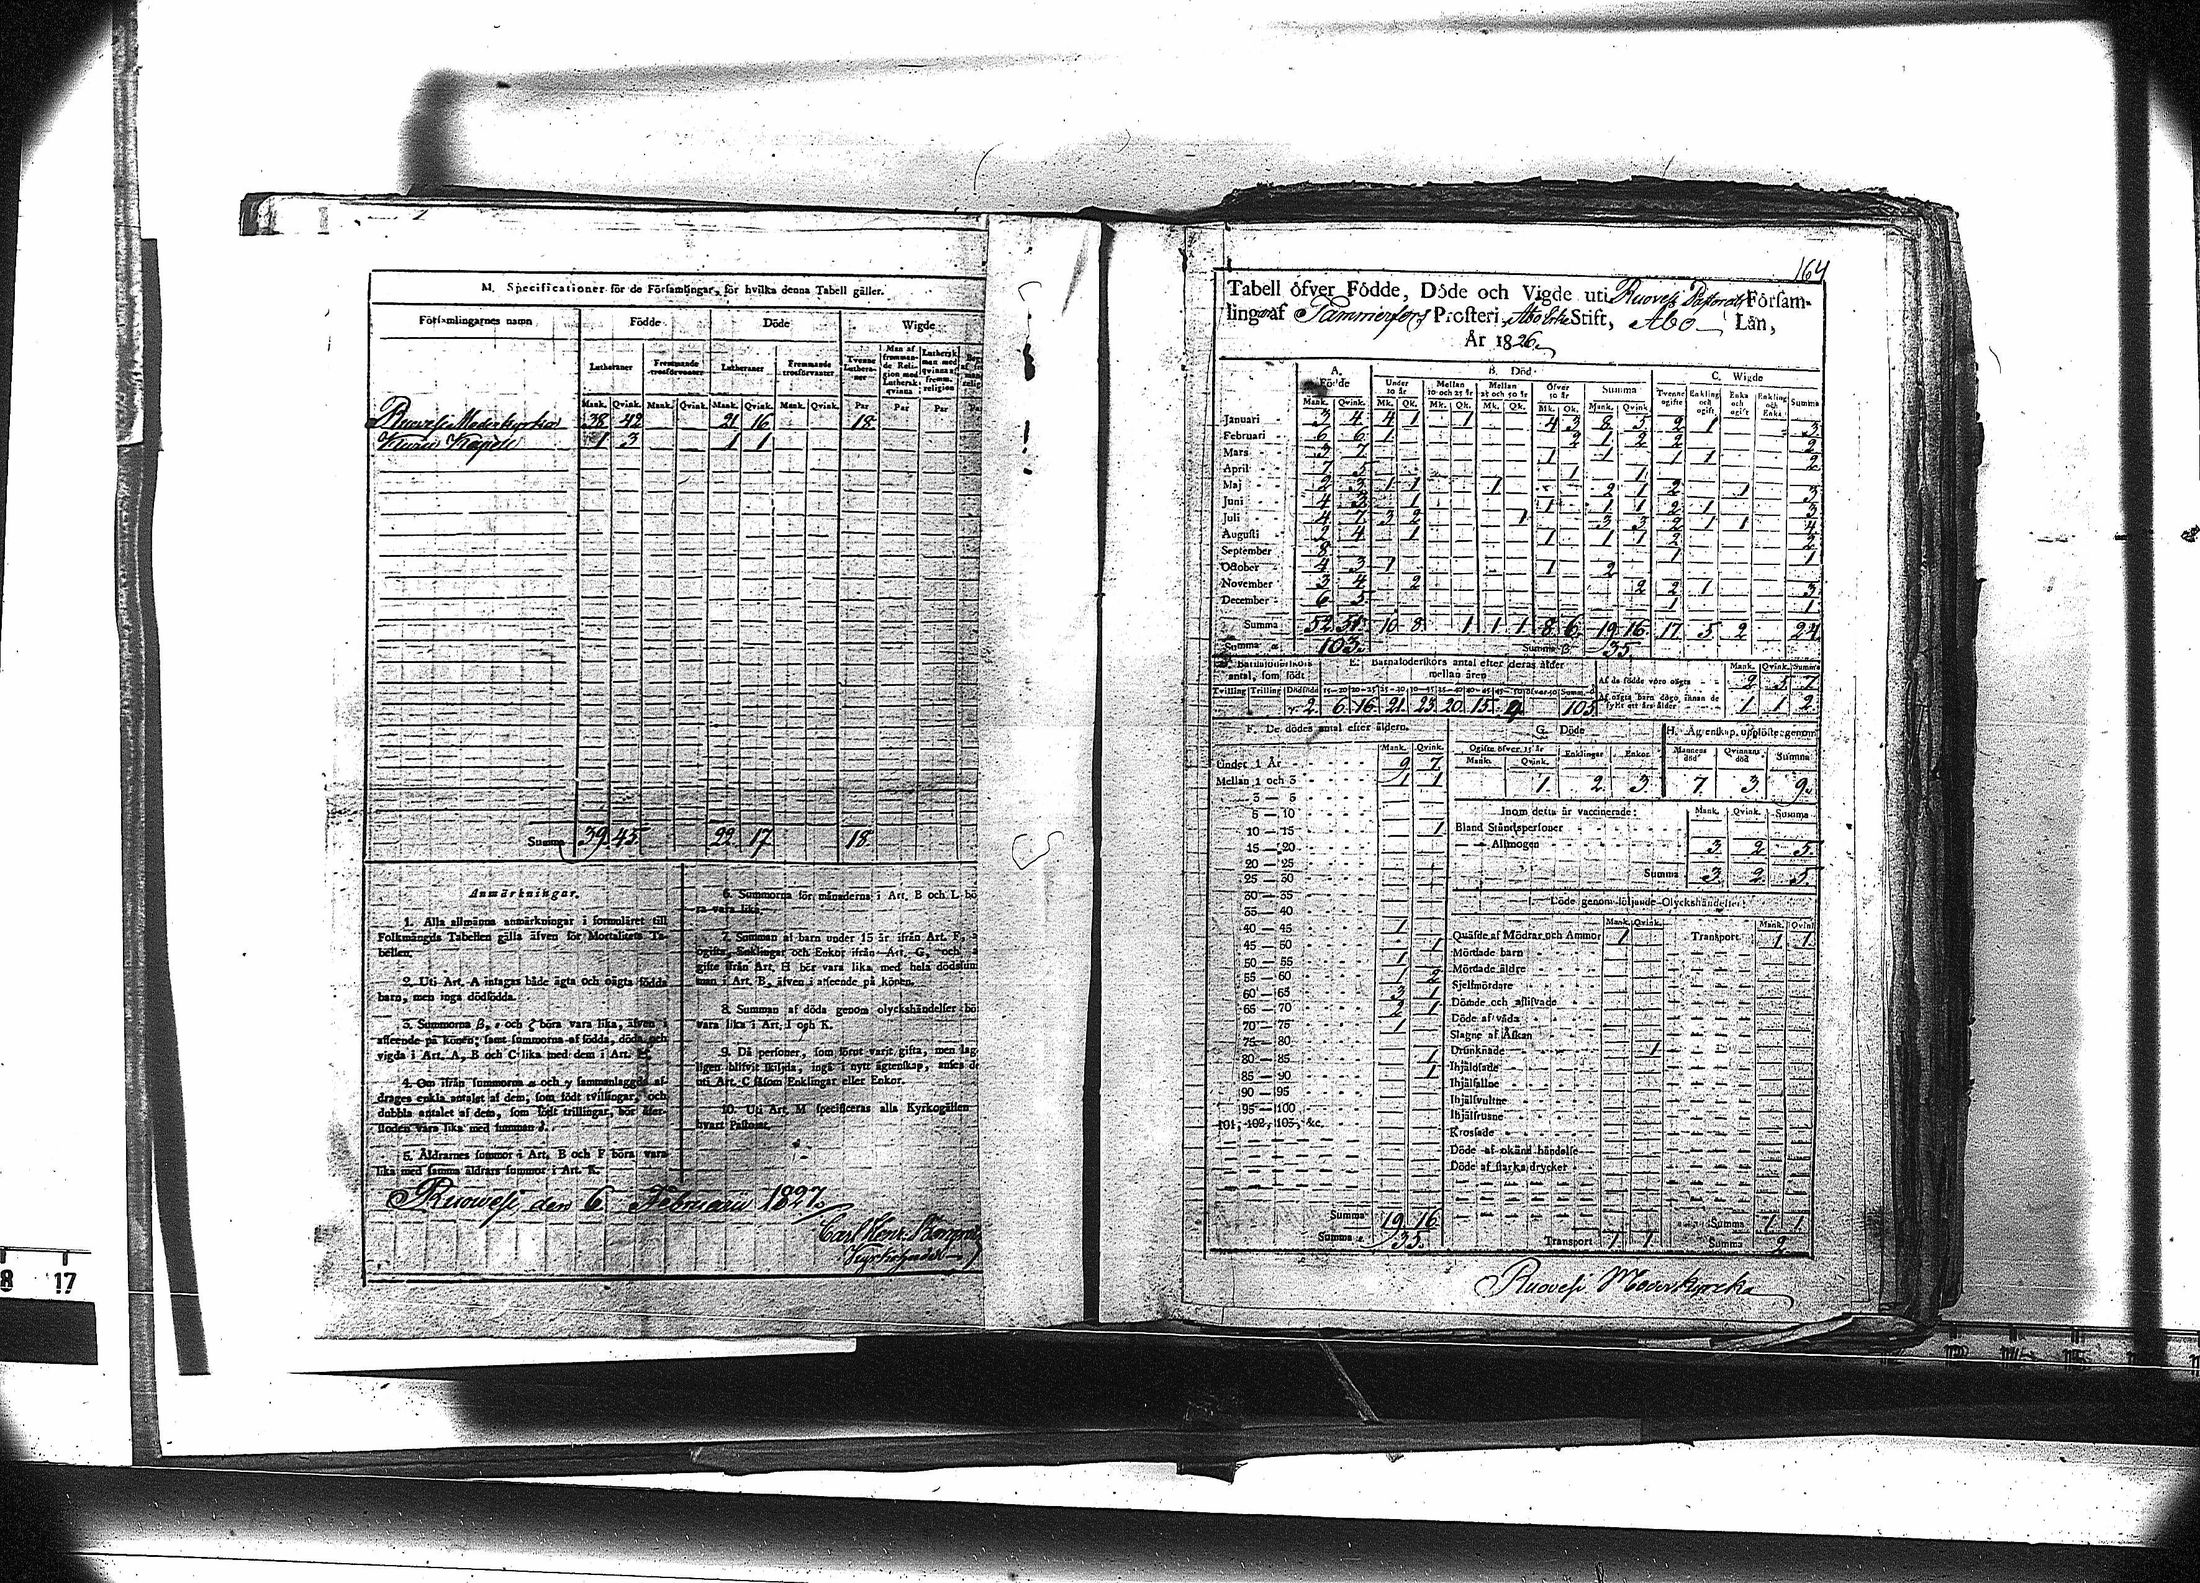 M. Specificationer för de Församlingar, för hvilka denna Tabell gäller.
Församlingarnes namn Födde Döde Wigde
Lutheraner Fremmande trosförvanter Lutheraner Fremmande trosförvanter Tvenne Lutheraner Man af fremmande Religion med Luthersk qvinna Luthersk man med qvinna af fremm. religion
Mank. Qvink. Mank. Qvink. Mank. Qvink. Mank. Qvink. Par Par Par
Ruovesi Moderkyrka 38 42 21 16 18
Kuru Kapell 1 3 1 1
Summa 39 45 22 17 18
Anmärkningar.
1. Alla allmänna anmärkningar i formuläret till
Folkmängds Tabellen gälla äfven för Mortalitets Ta-
bellen.
2. Uti Art. A intagas både ägta och oägta födda
barn, men inga dödfödda.
3. Summorna β, ε och ζ böra vara lika, äfven i
afseende på könen; samt summorna af födda, döda och
vigda i Art. A, B och C lika med dem i Art. M.
4. Om ifrån summorna α och γ sammanlagde af-
drages enkla antalet af dem, som födt tvillingar, och
dubbla antalet af dem, som födt trillingar, bör åter-
stoden vara lika med summan δ.
5. Åldrarnes summor i Art. B och F böra vara
lika med samma åldrars summor i Art. K.
6. Summorna för månaderna i Art. B och L bö
ra vara lika.
7. Summan af barn under 15 år ifrån Art. F,
ogifte, Enklingar och Enkor ifrån Art. G, och
gifte ifrån Art. H bör vara lika med hela dödssum
man i Art. B, äfven i afseende på könen.
8. Summan af döda genom olyckshändelser bö
vara lika i Art. I och K.
9. Då personer, som förut varit gifta, men lag
ligen blifvit skilda, ingå i nytt ägtenskap, anses de
uti Art. C såsom Enklingar eller Enkor.
10. Uti Art. M specificeras alla Kyrkogällen
hvart Pastorat.
Ruovesi den 6 Februarii 1827.
Carl Henr.
Kyrkoherde
164
Tabell öfver Födde, Döde och Vigde uti Ruovesi Pastorats Försam-
ling af Tammerfors Prosteri, Åbo Erke Stift, Åbo Län,
År 1826.
A. Födde B. Död C. Wigde
Under 10 år Mellan 10 och 25 år Mellan 25 och 50 år Öfver 50 år Summa Tvenne ogifte Enkling och ogift Enka och ogift Enkling och Enka Summa
Mank. Qvink. Mk. Qk. Mk. Qk. Mk. Qk. Mk. Qk. Mank. Qvink.
Januari 3 4 4 1 1 4 3 8 5 2 1 3
Februari 6 6 1 2 1 2 2 2
Mars 3 7 1 1 1 1 2
April 7 5 1 1
Maj 2 3 1 1 1 2 1 2 1 3
Juni 4 3 1 1 1 1 2 1 3
Juli 4 7 3 2 1 3 3 2 1 1 4
Augusti 2 4 1 1 1 1 2 2
September 8 1 1
October 4 3 1 1 2
November 3 4 2 2 2 1 3
December 6 5 1 1
Summa 52 51 10 8 1 1 1 8 6 19 16 17 5 2 24
Summa α 103 Summa β 35
D. Barnaföderskors antal, som födt E. Barnaföderskors antal efter deras ålder mellan åren Mank. Qvink. Summa
Tvilling Trilling Dödfödde 15—20 20—25 25—30 30—35 35—40 40—45 45—50 öfver 50 Summa δ
γ. 2 6 16 21 23 20 15 4 105
Af de födde voro oägta 2 5 7
Af oägta barn dogo innan de fyllt ett års ålder 1 1 2
F. De dödes antal efter åldern.
Mank. Qvink.
Under 1 År 9 7
Mellan 1 och 3 1 1
3 — 5
5 — 10
10 — 15 1
15 — 20
20 — 25
25 — 30 1
30 — 35
35 — 40
40 — 45 1
45 — 50 1
50 — 55 1
55 — 60 1 2
60 — 65 3 1
65 — 70 2 1
70 — 75 1
75 — 80
80 — 85 1
85 — 90 1
90 — 95
95 — 100
101, 102, 103, &c.
Summa 19 16
Summa ε. 35.
G. Döde
Ogifte öfver 15 år Enklingar Enkor
Mank. Qvink.
1. 2. 3.
H. Ägtenskap, upplöste genom
Mannens död Qvinnans död Summa
7. 3. 9.
Inom detta år vaccinerade: Mank. Qvink. Summa
Bland Ståndspersoner
Allmogen 3 2 5
Summa 3. 2. 5.
I. Döde genom följande Olyckshändelser:
Mank. Qvink. Mank. Qvink.
Quäfde af Mödrar och Ammor 1 Transport 1 1
Mördade barn
Mördade äldre
Sjelfmördare
Dömde och aflifvade
Döde af våda
Slagne af Åskan
Drunknade 1
Ihjälosade
Ihjälfallne
Ihjälsvultne
Ihjälfrusne
Krossade
Döde af okänd händelse
Döde af starka drycker
Summa 1 1
Transport 1. 1. Summa 2
Ruovesi Moderkyrcka